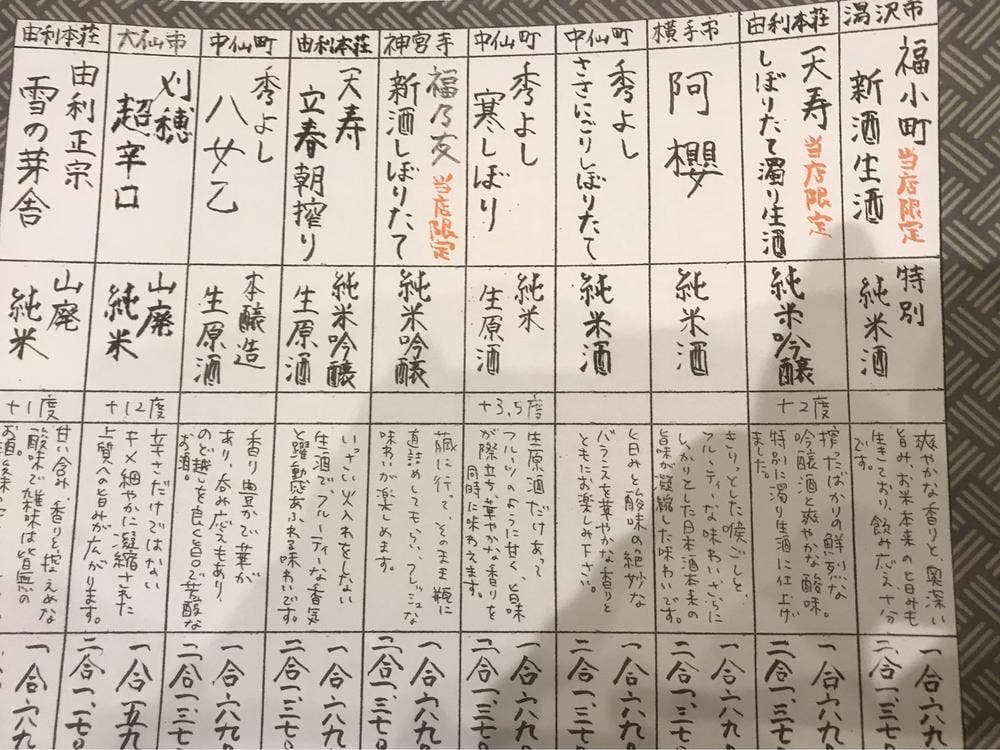 湯沢市
福小町
当店限定
新酒生酒
特別
純米酒
爽やかな香りと奥深い
旨み、お米本来の旨みも
生きており、飲み応え十分
です。
一合六八九
二合一、三七〇
由利本荘
天寿
当店限定
しぼりたて濁り生酒
純米吟醸
+2度
搾ったばかりの鮮烈な
吟醸酒と爽やかな酸味。
特別に濁り生酒に仕上げ
ました。
一合六八九
二合一、三七〇
横手市
阿櫻
純米酒
さらりとした喉ごしと、
フルーティーな味わいさらに
しっかりとした日本酒本来の
旨味が凝縮した味わいです。
一合六八九
二合一、三七〇
中仙町
秀よし
ささにごりしぼりたて
純米酒
旨みと酸味の絶妙な
バランスを華やかな香りと
ともにお楽しみ下さい。
一合六八九
二合一、三七〇
中仙町
秀よし
寒しぼり
純米
生原酒
+3.5度
生原酒だけあって
フルーツのように甘く、旨味
が際立ち華やかな香りを
同時に味わえます。
一合六八九
二合一、三七〇
神宮寺
福乃友
当店限定
新酒しぼりたて
純米吟醸
蔵に行って、そのまま瓶に
直詰めしてもらい、フレッシュな
味わいが楽しめます。
一合六八九
二合一、三七〇
由利本荘
天寿
立春朝搾り
純米吟醸
生原酒
いっさい火入れをしない
生酒で、フルーティーな香気
と躍動感あふれる味わいです。
一合六八九
二合一、三七〇
中仙町
秀よし
八女乙
本醸造
生原酒
香り豊かで華が
あり、呑み応えもあり、
のど越しを良く旨口で芳醇な
お酒。
一合六八九
二合一、三七〇
大仙市
刈穂
超辛口
山廃
純米
+12度
辛さだけではない
キメ細やかに凝縮された
上質への旨みが広がります。
一合五九
二合一、一七〇
由利本荘
由利正宗
雪の芽舎
山廃
純米
+1度
甘い含み、香りと控えめな
酸味で雑味は皆無の
一合六八九